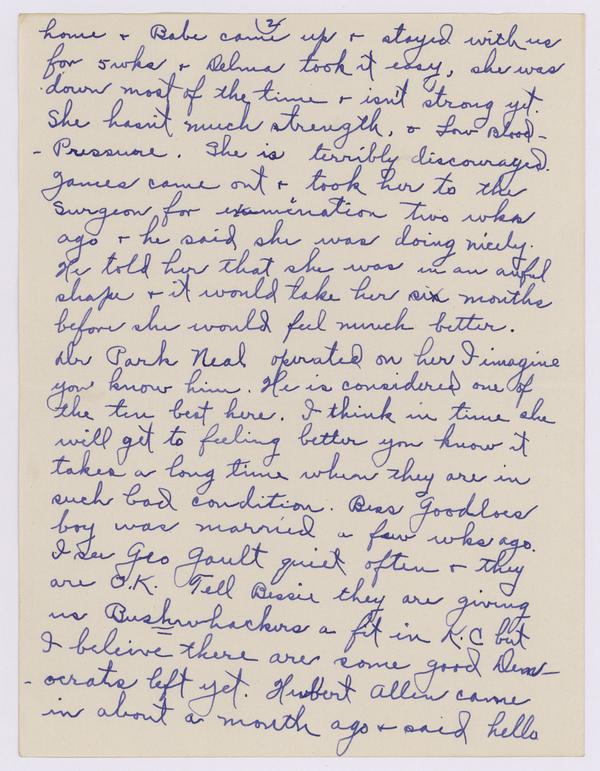 (2)
home + Babe came up + stayed with us
for 5 wks + Delma took it easy, she was
down most of the time + isn't strong yet.
She hasn't much strength, & Low Blood-
- Pressure. She is terribly discouraged.
James came out + took her to the
Surgeon for examination two wks
ago + he said she was doing nicely.
He told her that she was in an awful
shape + it would take her six months
before she would feel much better.
Dr Park Neal operated on her I imagine
you know him. He is considered one of
the ten best here. I think in time she
will get to feeling better you know it
takes a long time when they are in
such bad condition. Bess Goodloes
boy was married a few wks ago.
I see Geo Gault quiet often + they
are O.K. Tell Bessie they are giving
us Bushwhackers a fit in K.C but
I beleive there are some good Dem-
- ocrats left yet. Hubert Allen came
in about a month ago + said hello